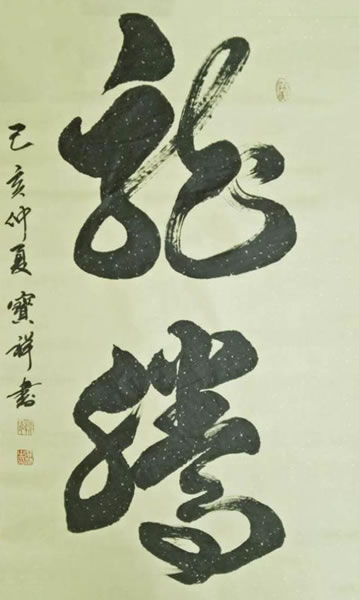 龍騰
己亥仲夏寶祥書